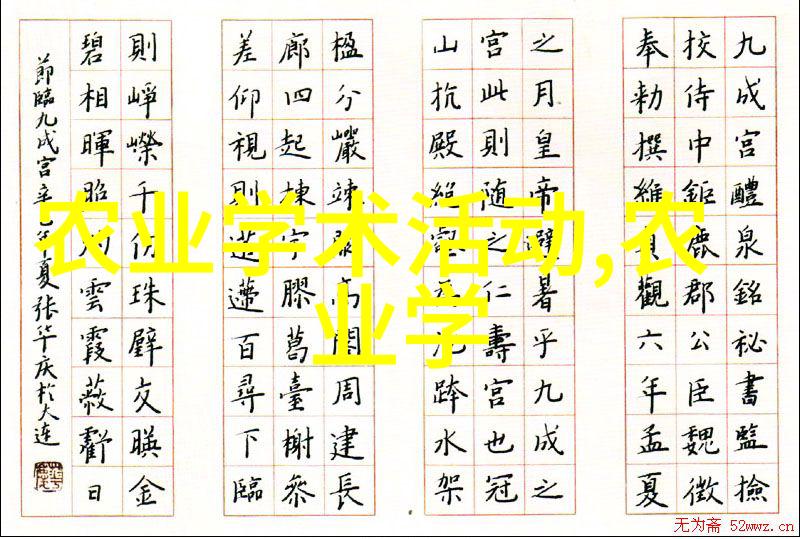 九成宫醴泉銘祕書監撿
挍侍中鉅鹿郡公臣魏徵
奉勅撰維貞觀六年孟夏
之月皇帝避暑乎九成之
宫此則随之仁壽宫也冠
山抗殿絕壑為池跨水架
楹分巖竦闕高閣周建長
廊四起棟宇膠葛臺榭參
差仰視則迢遰百尋下臨
則崢嶸千仞珠璧交暎金
碧相暉昭灼雲霞蔽虧日
節臨九成宫辛巳年夏张华庆於大连
农业学术活动,农
业学
无为斋 52wwz.cn